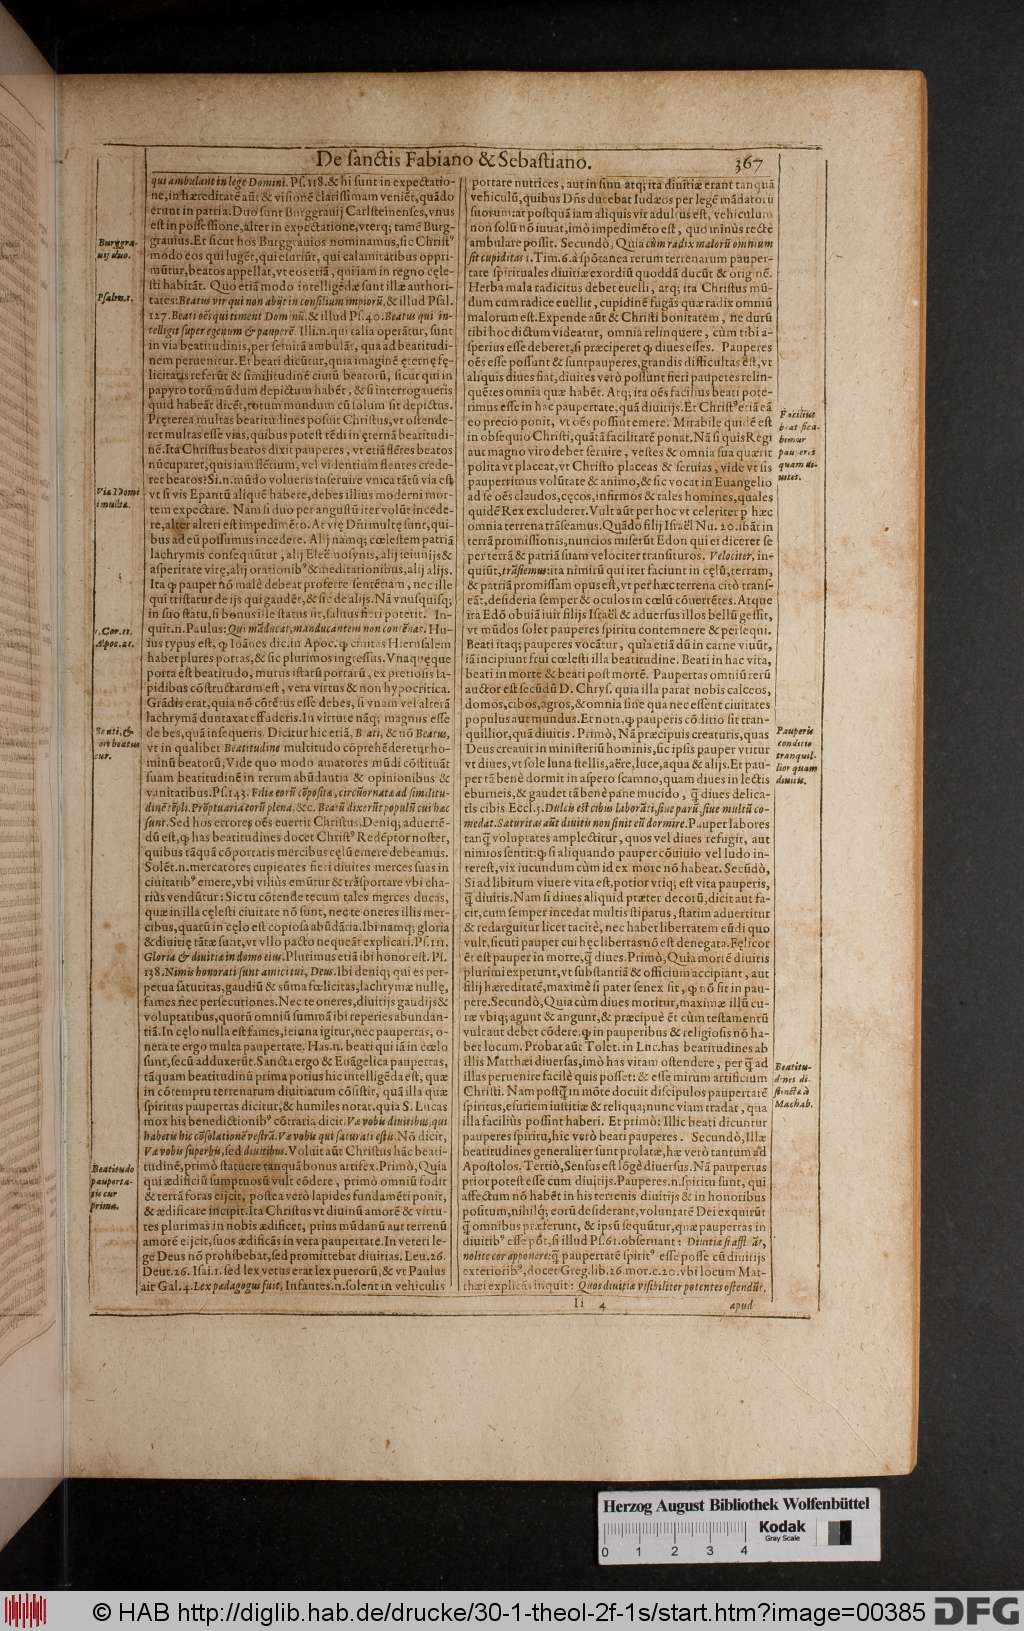 De sanctis Fabiano & Sebastiano.
367
qui ambulant in lege Domini. Ps.118.& hi sunt in expectatio-
ne,in hæreditatē aūt & visionē clarissimam veniēt,quādo
erunt in patria.Duo sunt Burggravij Carlsteinenses,vnus
est in possessione,alter in expectatione,vterq; tamē Burg-
grauius.Et sicut hos Burggrauios nominamus,sic Christꝰ
modo eos qui lugēt,qui esuriūt, qui calamitatibus oppri-
mūtur,beatos appellat,vt eos etiā, qui iam in regno cęle-
sti habitāt. Quo etiā modo intelligēdæ sunt illæ authori-
tates:Beatus vir qui non abijt in consilium impiorū,& illud Psal.
127.Beati oēs qui timent Dominū.& illud Ps.40.Beatus qui in-
telligit super egenum & pauperē Illi.n.qui talia operātur, sunt
in via beatitudinis,per semitā ambulāt, qua ad beatitudi-
nem peruenitur.Et beati dicūtur,quia imaginē ęternę fę-
licitatis referūt & similitudinē ciuiū beatorū, sicut qui in
papyro totū mūdum depictum habēt, & si interrogaueris
quid habeāt dicēt,totum mundum cū solum sit depictus.
Pręterea multas beatitudines posuit Christus,vt ostende-
ret multas esse vias,quibus potest tēdi in ęternā beatitudi-
nē.Ita Christus beatos dixit pauperes, vt etiā flētes beatos
nūcuparet,quis iam flētium, vel vilentium flentes crede-
ret beatos?Si.n.mūdo volueris inseruire vnica tātū via est
vt si vis Epantū aliquē habere,debes illius moderni mor-
tem expectare. Nam si duo per angustū iter volūt incede-
re,alter alteri est impedimēto.At vię Dn̄i multę sunt,qui-
bus ad eū possumus incedere. Alij namq; cœlestem patriā
lachrymis consequūtur, alij Eleēmosynis, alij ieiunijs &
asperitate vitę,alij orationibꝰ & meditationibus,alij alijs.
Ita ꝙ pauper nō malè debeat proferre sentētiam, nec ille
qui tristatur de ijs qui gaudēt,& sic de alijs.Nā vnusquisq;
in suo statu,si bonus ille status sit,saluus fieri poterit. In-
quit.n.Paulus:Qui mādūcat,manducantem non contēnat. Hu-
ius typus est, ꝙ Ioānes dic.in Apoc.ꝙ ciuitas Hierusalem
habet plures portas,& sic plurimos ingressus.Vnaquęque
porta est beatitudo, murus istarū portarū, ex pretiosis la-
pidibus cōstructarum est, vera virtus & non hypocritica.
Grādis erat,quia nō cōtētus esse debes, si vnam vel alterā
lachrymā duntaxat effuderis.In virtute nāq; magnus esse
debes,quā insequeris. Dicitur hic etiā, Beati, & nō Beatus,
vt in qualibet Beatitudine multitudo cōprehēderetur ho-
minū beatorū,Vide quo modo amatores mūdi cōstituāt
suam beatitudinē in rerum abūdantia & opinionibus &
vanitatibus.Ps.143.Filiæ eorū cōpositæ,circūornatæ ad similitu-
dinē tēpli. Prōptuaria eorū plena.&c. Beatū dixerūt populū cui hæc
sunt.Sed hos errores oēs euertit Christus.Deniq; aduertē-
dū est,ꝙ has beatitudines docet Christꝰ Redēptor noster,
quibus tāquā cōportatis mercibus cęlū emere debeamus.
Solēt.n.mercatores cupientes fieri diuites merces suas in
ciuitatibꝰ emere,vbi viliùs emūtur & trāsportare vbi cha-
riùs vendūtur: Sic tu cōtende tecum tales merces ducas,
quæ in illa cęlesti ciuitate nō sunt, nec te oneres illis mer-
cibus,quarū in cęlo est copiosa abūdātia.Ibi namq; gloria
& diuitię tātæ sunt,vt vllo pacto nequeāt explicari.Ps.111.
Gloria & diuitiæ in domo eius.Plurimus etiā ibi honor est. Ps.
138.Nimis honorati sunt amici tui, Deus.Ibi deniq; qui es per-
petua saturitas,gaudiū & sūma fœlicitas,lachrymæ nullę,
fames nec persecutiones.Nec te oneres,diuitijs gaudijs &
voluptatibus,quorū omniū summā ibi reperies abundan-
tiā.In cęlo nulla est fames,ieiuna igitur,nec paupertas, o-
nera te ergo multa paupertate. Has.n. beati qui iā in cœlo
sunt,secū adduxerūt.Sancta ergo & Euāgelica paupertas,
tāquam beatitudinū prima potius hic intelligēda est, quæ
in cōtemptu terrenarum diuitiarum cōsistit, quā illa quæ
spiritus paupertas dicitur,& humiles notat.quia S. Lucas
mox his benedictionibꝰ cōtraria dicit.Væ vobis diuitibus,qui
habetis hic cōsolationē vestrā.Væ vobis qui saturati estis.Nō dicit,
Væ vobis superbis,sed diuitibus.Voluit aūt Christus hāc beati-
tudinē,primò statuere tanquā bonus artifex.Primò,Quia
qui ædificiū sumptuosū vult cōdere, primò omniū fodit
& terrā foras eijcit, postea verò lapides fundamēti ponit,
& ædificare incipit.Ita Christus vt diuinū amorē & virtu-
tes plurimas in nobis ædificet, prius mūdanū aut terrenū
amorē eijcit,suos ædificās in vera paupertate.In veteri le-
ge Deus nō prohibebat,sed promittebat diuitias. Leu.26.
Deut.26. Isai.1.sed lex vetus erat lex puerorū,& vt Paulus
ait Gal.4.Lex pædagogus fuit, Infantes.n.solent in vehiculis
portare nutrices, aut in sinu atq; ita diuitiæ erant tanquā
vehiculū,quibus Dn̄s ducebat Iudæos per legē mādatorū
suorum:at postquā iam aliquis vir adultus est, vehiculum
non solū nō iuuat,imò impedimēto est, quo minùs recte
ambulare possit. Secundò, Quia cùm radix malorū omnium
sit cupiditas 1.Tim.6.à spōtanea rerum terrenarum pauper-
tate spirituales diuitiæ exordiū quoddā ducūt & originē.
Herba mala radicitus debet euelli, atq; ita Christus mū-
dum cum radice euellit, cupidinē fugās quæ radix omniū
malorum est.Expende aūt & Christi bonitatem, ne durū
tibi hoc dictum videatur, omnia relinquere, cùm tibi a-
sperius esse deberet,si præciperet ꝙ diues esses. Pauperes
oēs esse possunt & sunt pauperes,grandis difficultas est,vt
aliquis diues fiat,diuites verò possunt fieri pauperes relin-
quētes omnia quæ habēt. Atq; ita oēs facilius beati pote-
rimus esse in hac paupertate,quā diuitijs.Et Christꝰ etiā eā
eo precio ponit, vt oēs possint emere. Mirabile quidē est
in obsequio Christi,quātā facilitatē ponat.Nā si quis Regi
aut magno viro debet seruire, vestes & omnia sua quærit
polita vt placeat,vt Christo placeas & seruias, vide vt sis
pauperrimus volūtate & animo,& sic vocat in Euangelio
ad se oēs claudos,cęcos,infirmos & tales homines,quales
quidē Rex excluderet.Vult aūt per hoc vt celeriter p hæc
omnia terrena trāseamus.Quādo filij Israël Nu.20.ibāt in
terrā promissionis,nuncios miserūt Edon qui ei diceret se
per terrā & patriā suam velociter transituros. Velociter, in-
quiūt,trāsiemus:ita nimirū qui iter faciunt in cęlū,terram,
& patriā promissam opus est,vt per hæc terrena citò trans-
eāt,desideria semper & oculos in cœlū cōuertētes.Atque
ita Edō obuiā iuit filijs Israël & aduersus illos bellū gessit,
vt mūdos solet pauperes spiritu contemnere & persequi.
Beati itaq; pauperes vocātur, quia etiā dū in carne viuūt,
iā incipiunt frui cœlesti illa beatitudine. Beati in hac vita,
beati in morte & beati post mortē. Paupertas omniū rerū
auctor est secūdū D. Chrys. quia illa parat nobis calceos,
domos,cibos,agros,&omnia sine qua nec essent ciuitates
populus aut mundus.Et nota,ꝙ pauperis cōditio sit tran-
quillior,quā diuitis. Primò, Nā præcipuis creaturis,quas
Deus creauit in ministeriū hominis,sic ipsis pauper vtitur
vt diues,vt sole luna stellis,aëre,luce,aqua & alijs.Et pau-
per tā benè dormit in aspero scamno,quam diues in lectis
eburneis,& gaudet tā benè pane mucido, q̄ diues delica-
tis cibis Eccl.5.Dulcis est cibus laborāti,siue parū siue multū co-
medat.Saturitas aūt diuitū non sinit eū dormire.Pauper labores
tanq̄ voluptates amplectitur, quos vel diues refugit, aut
nimios sentit:ꝙ si aliquando pauper cōuiuio vel ludo in-
terest,vix iucundum cùm id ex more nō habeat. Secūdò,
Si ad libitum viuere vita est,potior vtiq; est vita pauperis,
q̄ diuitis.Nam si diues aliquid præter decorū,dicit aut fa-
cit,cum semper incedat multis stipatus, statim aduertitur
& redarguitur licet tacitè, nec habet libertatem eūdi quo
vult,sicuti pauper cui hęc libertas nō est denegata.Fęlicor
ēt est pauper in morte,q̄ diues.Primò,Quia mortē diuitis
plurimi expetunt,vt substantiā & officium accipiant, aut
filij hæreditatē,maximè si pater senex sit, ꝙ nō fit in pau-
pere.Secundò,Quia cùm diues moritur,maximæ illū cu-
ræ vbiq; agunt & angunt,& præcipuè ēt cùm testamentū
vult aut debet cōdere.ꝙ in pauperibus & religiosis nō ha-
bet locum. Probat aūt Tolet. in Luc.has beatitudines ab
illis Matthæi diuersas,imò has viam ostendere, per q̄ ad
illas peruenire facilè quis posset: & esse mirum artificium
Christi. Nam postq̄ in mōte docuit discipulos paupertatē
spiritus,esuriem iustitiæ & reliqua;nunc viam tradat, qua
illa faciliùs possint haberi. Et primò: Illic beati dicuntur
pauperes spiritu,hic verò beati pauperes. Secundò,Illæ
beatitudines generaliter sunt prolatæ,hæ verò tantum ad
Apostolos. Tertiò,Sensus est lōgè diuersus.Nā paupertas
prior potest esse cum diuitijs.Pauperes.n.spiritu sunt, qui
affectum nō habēt in his terrenis diuitijs & in honoribus
positum,nihilq; eorū desiderant,voluntatē Dei exquirūt
q̄ omnibus præferunt, & ipsū sequūtur,quæ paupertas in
diuitibꝰ esse pōt,si illud Ps.61.obseruant: Diuitiæ si affluāt,
nolite cor apponere:q̄ paupertatē spiritꝰ esse posse cū diuitijs
exterioribꝰ,docet Greg.lib.26.mor.c.20.vbi locum Mat-
thæi explicās inquit: Quos diuitiæ visibiliter potentes ostendūt,
Ii 4
apud
Burggra-
uij duo.
Psalm.1.
Via Domi
i multæ.
1.Cor.11.
Apoc.21.
Beati, &
nō beatus
cur.
Beatitudo
pauperta-
tis cur
prima.
Facilius
beat fica-
bimur
pauperes
quam di-
uites.
Pauperis
conditio
tranquil-
lior quam
diuitis.
Beatitu-
dines di-
stinctæ à
Matthæo.
Herzog August Bibliothek Wolfenbüttel
Kodak
Gray Scale
0 1 2 3 4
© HAB http://diglib.hab.de/drucke/30-1-theol-2f-1s/start.htm?image=00385
DFG